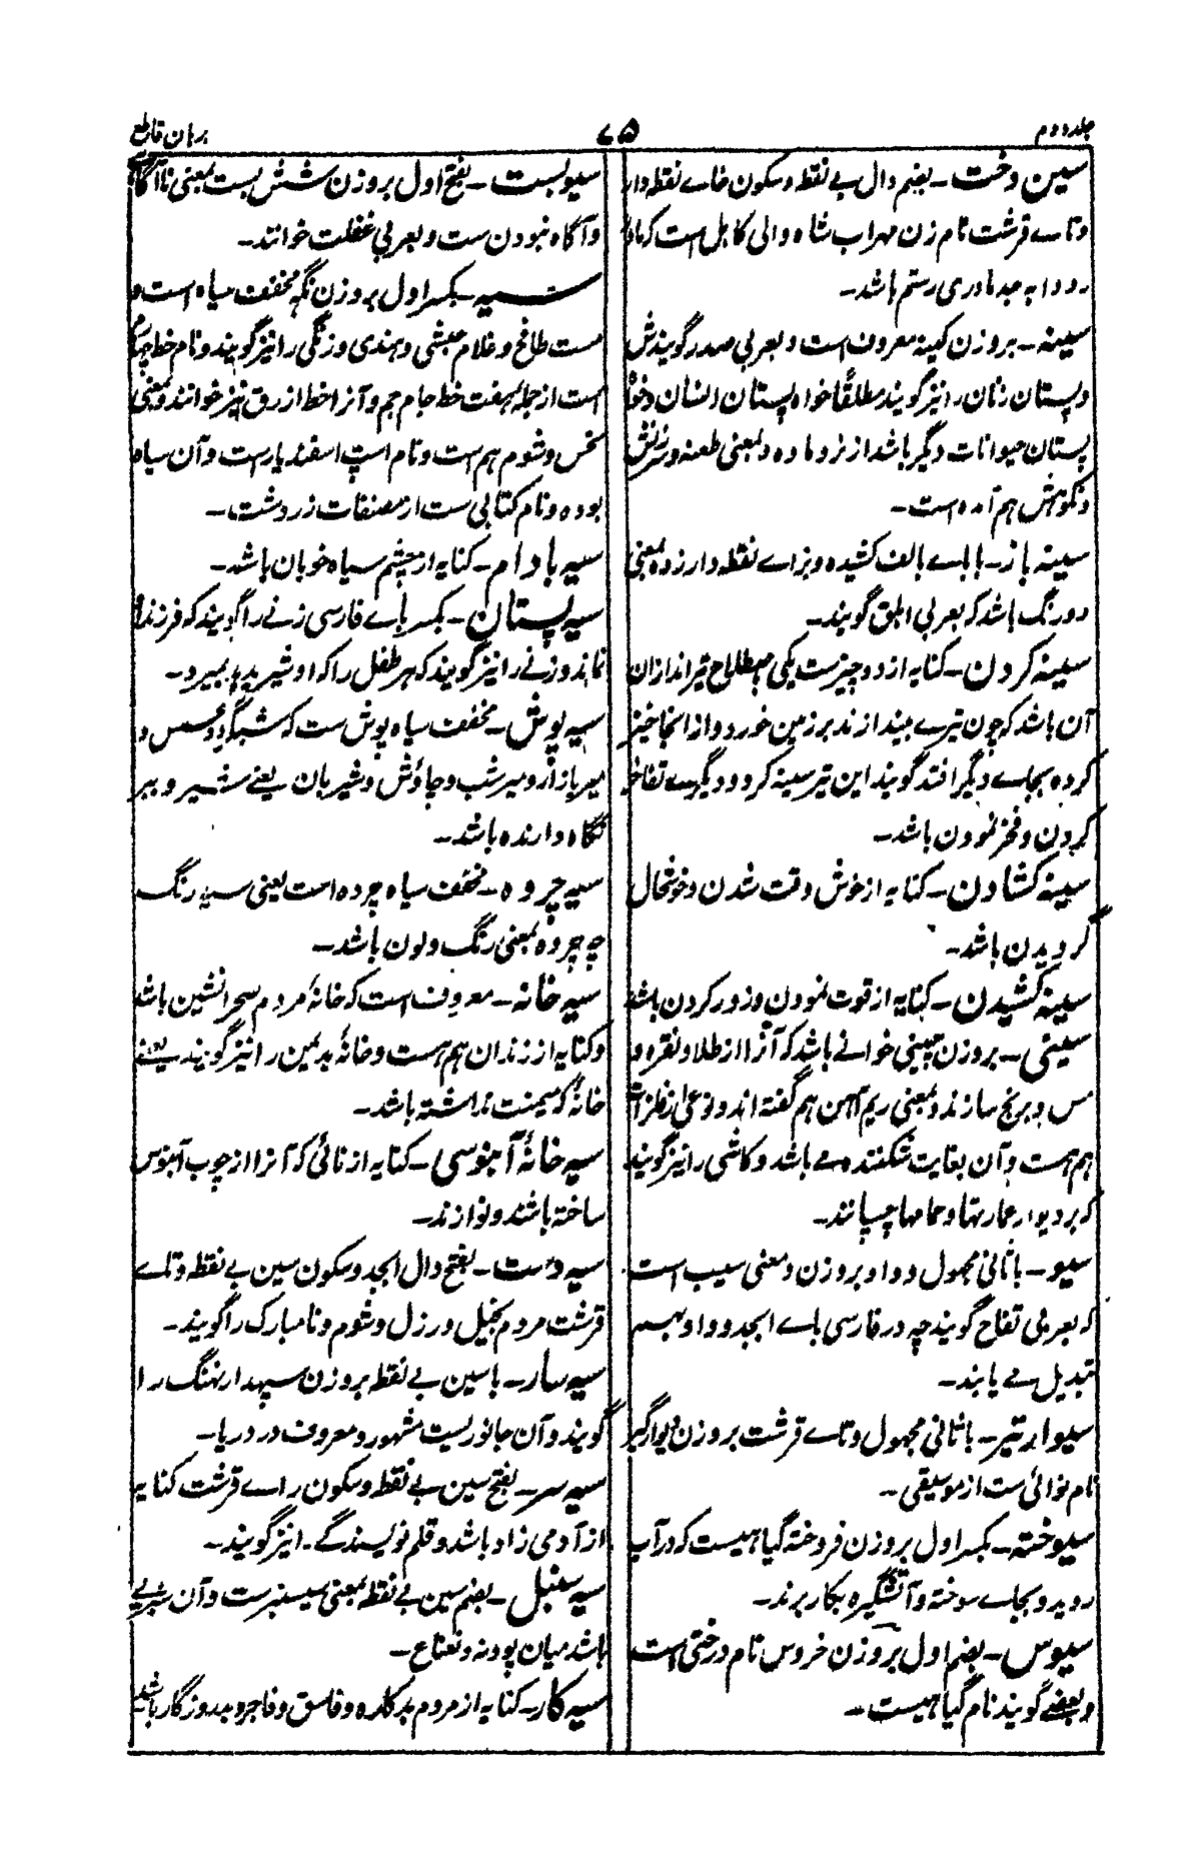 جلد دوم
۷۵
برهان قاطع
سین دخت - بضم دال بے نقطه و سکون خاے نقطه دار
و تاے قرشت نام زن مهراب شاه والی کابل است که مادر
رودابه جد مادری رستم باشد -
سینه - بر وزن کینه معروف است و بعربی صدر گویندش
و پستان زنان را نیز گویند مطلقًا خواه پستان انسان و خواه
پستان حیوانات دیگر باشد از نر و ماده و بمعنی طعنه و سرزنش
و نکوهش هم آمده است -
سینه باز - با باے بالف کشیده و بزاے نقطه دار زده بمعنی
دو رنگ باشد که بعربی ابلق گویند -
سینه کردن - کنایه از دو چیزست یکی باصطلاح تیراندازان
آن باشد که چون تیرے بیندازند بر زمین خورد و از انجا خیز
کرده بجاے دیگر افتد گویند این تیر سینه کرد و دیگرے تفاخر
کردن و فخر نمودن باشد -
سینه کشادن - کنایه از خوش وقت شدن و خوشحال
گردیدن باشد -
سینه کشیدن - کنایه از قوت نمودن و زور کردن باشد
سینی - بر وزن چینی خوانے باشد که آنرا از طلا و نقره و
مس و برنج سازند و بمعنی ریم آهن هم گفته اند و نوعی از فلزات
هم هست و آن بغایت شکننده مے باشد و کاشی را نیز گویند
که بر دیوار عمارتها و حمامها چسپانند -
سیو - با ثانی مجهول و واو بر وزن و معنی سیب است
که بعربی تفاح گویند چه در فارسی باے ابجد و واو بهم
تبدیل مے یابند -
سیوار تیر - با ثانی مجهول و تاے قرشت بر وزن دیوارگیر
نام نوائی ست از موسیقی -
سیوخته - بکسر اول بر وزن فروخته گیاهیست که در آب
روید و بجاے سوخته و آتشگیره بکار برند -
سیوس - بضم اول بر وزن خروس نام درختی است
و بعضے گویند نام گیاهیست -
سیوبست - بفتح اول بر وزن شش بست بمعنی ناآگاهے
و آگاه نبودن ست و بعربی غفلت خوانند -
سیه - بکسر اول بر وزن نگه مخفف سیاه است و
مست طافح و غلام حبشی و هندی و زنگی را نیز گویند و نام خط چهارم
است از جمله هفت خط جام جم و آنرا خط ازرق نیز خوانند و بمعنی
نحس و شوم هم هست و نام اسپ اسفندیارست و آن سیاه
بوده و نام کتابی ست از مصنفات زردشت -
سیه بادام - کنایه از چشم سیاه خوبان باشد -
سیه پستان - بکسر باے فارسی زنے را گویند که فرزند او
نماند و زنے را نیز گویند که هر طفل را که او شیر بدهد بمیرد -
سیه پوش - مخفف سیاه پوش ست که شبگرد و عسس و
میر بازار و میر شب و چاوش و شیربان یعنے شیر و ببر
نگاه دارنده باشد -
سیه چرده - مخفف سیاه چرده است یعنی سیه رنگ
چه چرده بمعنی رنگ و لون باشد -
سیه خانه - معروف است که خانهٔ مردم صحرانشین باشد
و کنایه از زندان هم هست و خانهٔ بدیمن را نیز گویند یعنے
خانهٔ که میمنت نداشته باشد -
سیه خانهٔ آبنوسی - کنایه از نائی که آنرا از چوب آبنوس
ساخته باشند و نوازند -
سیه دست - بفتح دال ابجد و سکون سین بے نقطه و تاے
قرشت مردم بخیل و رزل و شوم و نامبارک را گویند -
سیه سار - با سین بے نقطه بر وزن سپهدار نهنگ را
گویند و آن جانوریست مشهور و معروف در دریا -
سیه سر - بفتح سین بے نقطه و سکون راے قرشت کنایه
از آدمی زاد باشد و قلم نویسندگے را نیز گویند -
سیه سنبل - بضم سین بے نقطه بمعنی سیسنبرست و آن سبزیے
باشد میان پودنه و نعناع -
سیه کار - کنایه از مردم بدکاره و فاسق و فاجر و بد روزگار باشد -